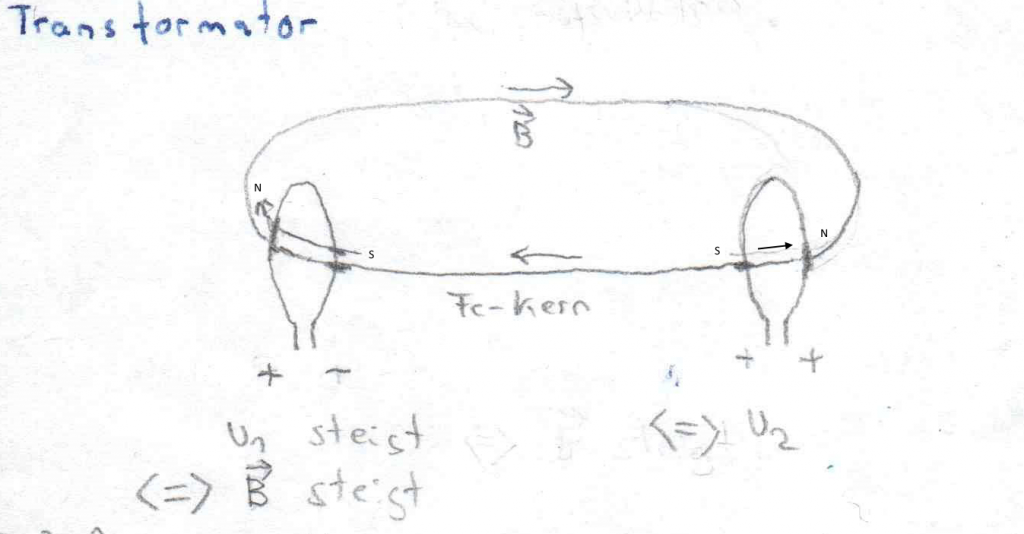 Transformator
B
N
S
S
N
Fe-Kern
+ -
+ +
U1 steigt
<=> U2
<=> B steigt